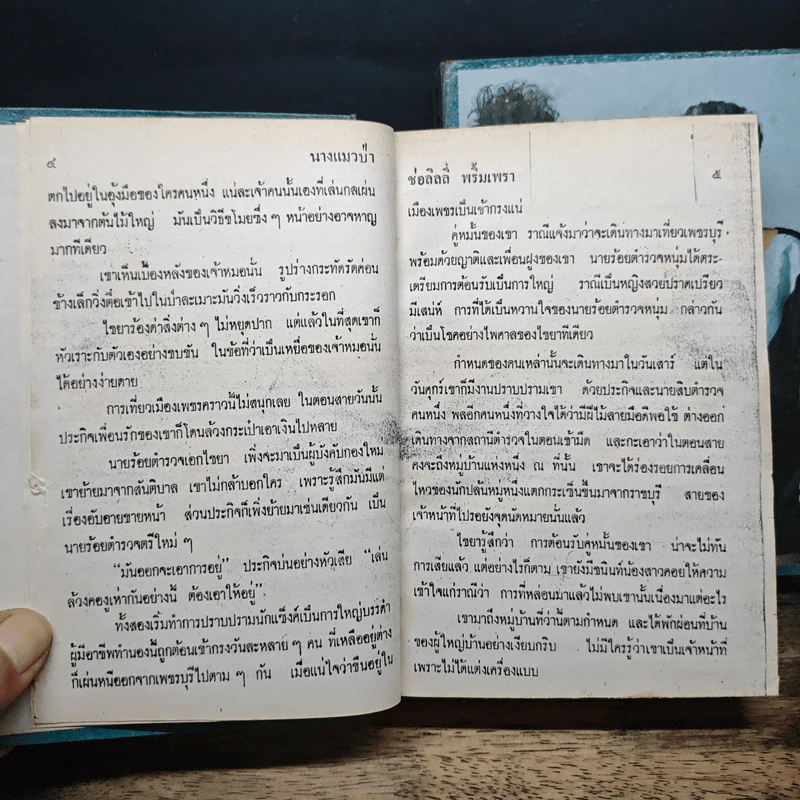 ๔ นางแมวป่า
ตกไปอยู่ในอุ้งมือของใครคนหนึ่ง แน่ละเจ้าคนนั้นเองที่เล่นกลเผ่น
ลงมาจากต้นไม้ใหญ่ มันเป็นวิธีขโมยซึ่ง ๆ หน้าอย่างอาจหาญ
มากทีเดียว
เขาเห็นเบื้องหลังของเจ้าหมอนั่น รูปร่างกระทัดรัดค่อน
ข้างเล็กวิ่งตื๋อเข้าไปในป่าละเมาะมันวิ่งเร็วราวกับกระรอก
ไชยาร้องด่าสิ่งต่าง ๆ ไม่หยุดปาก แต่แล้วในที่สุดเขาก็
หัวเราะกับตัวเองอย่างขบขัน ในข้อที่ว่าเป็นเหยื่อของเจ้าหมอนั่น
ได้อย่างง่ายดาย
การเที่ยวเมืองเพชรคราวนี้ไม่สนุกเลย ในตอนสายวันนั้น
ประกิจเพื่อนรักของเขาก็โดนล้วงกระเป๋าเอาเงินไปหลาย
นายร้อยตำรวจเอกไชยา เพิ่งจะมาเป็นผู้บังคับกองใหม่
เขาย้ายมาจากสันติบาล เขาไม่กล้าบอกใคร เพราะรู้สึกมันมีแต่
เรื่องอับอายขายหน้า ส่วนประกิจก็เพิ่งย้ายมาเช่นเดียวกัน เป็น
นายร้อยตำรวจตรีใหม่ ๆ
“มันออกจะเอาการอยู่” ประกิจบ่นอย่างหัวเสีย “เล่น
ล้วงคองูเห่ากันอย่างนี้ ต้องเอาให้อยู่”
ทั้งสองเริ่มทำการปราบปรามนักแซ็งค์เป็นการใหญ่บรรดา
ผู้มีอาชีพทำนองนี้ถูกต้อนเข้ากรงวันละหลาย ๆ คน ที่เหลืออยู่ต่าง
ก็เผ่นหนีออกจากเพชรบุรีไปตาม ๆ กัน เมื่อแน่ใจว่าขืนอยู่ใน
ช่อลิลลี่ พริ้มเพรา ๕
เมืองเพชรเป็นเข้ากรงแน่
คู่หมั้นของเขา ราณีแจ้งมาว่าจะเดินทางมาเที่ยวเพชรบุรี
พร้อมด้วยญาติและเพื่อนฝูงของเขา นายร้อยตำรวจหนุ่มได้ตระ-
เตรียมการต้อนรับเป็นการใหญ่ ราณีเป็นหญิงสวยปราดเปรียว
มีเสน่ห์ การที่ได้เป็นหวานใจของนายร้อยตำรวจหนุ่ม กล่าวกัน
ว่าเป็นโชคอย่างไพศาลของไชยาทีเดียว
กำหนดของคนเหล่านั้นจะเดินทางมาในวันเสาร์ แต่ใน
วันศุกร์เขาก็มีงานปราบปรามเขา ด้วยประกิจและนายสิบตำรวจ
คนหนึ่ง พลอีกคนหนึ่งที่วางใจได้ว่ามีฝีไม้ลายมือดีพอใช้ ต่างออก
เดินทางจากสถานีตำรวจในตอนเช้ามืด และกะเอาว่าในตอนสาย
คงจะถึงหมู่บ้านแห่งหนึ่ง ณ ที่นั้น เขาจะได้ร่องรอยการเคลื่อน
ไหวของนักปล้นหมู่หนึ่งแตกกระเซ็นขึ้นมาจากราชบุรี สายของ
เจ้าหน้าที่ไปรอยังจุดนัดหมายนั้นแล้ว
ไชยารู้สึกว่า การต้อนรับคู่หมั้นของเขา น่าจะไม่ทัน
การเสียแล้ว แต่อย่างไรก็ตาม เขายังมีขนินท์น้องสาวคอยให้ความ
เข้าใจแก่ราณีว่า การที่หล่อนมาแล้วไม่พบเขานั้นเนื่องมาแต่อะไร
เขามาถึงหมู่บ้านที่ว่านี้ตามกำหนด และได้พักผ่อนที่บ้าน
ของผู้ใหญ่บ้านอย่างเงียบกริบ ไม่มีใครรู้ว่าเขาเป็นเจ้าหน้าที่
เพราะไม่ได้แต่งเครื่องแบบ